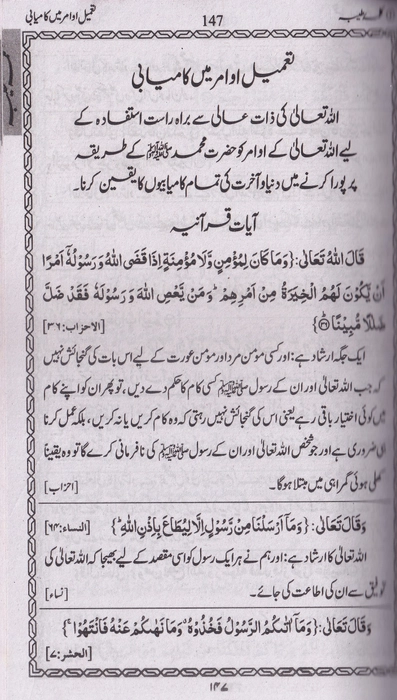 کلمہ طیبہ 147 تعمیل اوامر میں کامیابی
تعمیل اوامر میں کامیابی
اللہ تعالیٰ کی ذات عالی سے براہ راست استفادہ کے
لیے اللہ تعالیٰ کے اوامر کو حضرت محمد ﷺ کے طریقہ
پر پورا کرنے میں دنیا و آخرت کی تمام کامیابیوں کا یقین کرنا۔
آیات قرآنیہ
قَالَ اللهُ تَعَالٰى: {وَمَا كَانَ لِمُؤْمِنٍ وَّلَا مُؤْمِنَةٍ اِذَا قَضَى اللهُ وَرَسُوْلُهٗٓ اَمْرًا
اَنْ يَّكُوْنَ لَهُمُ الْخِيَرَةُ مِنْ اَمْرِهِمْ ؕ وَمَنْ يَّعْصِ اللهَ وَرَسُوْلَهٗ فَقَدْ ضَلَّ
ضَلٰلًا مُّبِيْنًا ۝} [الاحزاب:٣٦]
ایک جگہ ارشاد ہے: اور کسی مومن مرد اور مومن عورت کے لیے اس بات کی گنجائش نہیں
کہ جب اللہ تعالیٰ اور ان کے رسول ﷺ کسی کام کا حکم دے دیں، تو پھر ان کو اپنے کام
میں کوئی اختیار باقی رہے یعنی اس کی گنجائش نہیں رہتی کہ وہ کام کریں یا نہ کریں، بلکہ عمل کرنا
ہی ضروری ہے اور جو شخص اللہ تعالیٰ اور ان کے رسول ﷺ کی نافرمانی کرے گا تو وہ یقیناً
کھلی ہوئی گمراہی میں مبتلا ہوگا۔ [احزاب]
وَقَالَ تَعَالٰى: {وَمَآ اَرْسَلْنَا مِنْ رَّسُوْلٍ اِلَّا لِيُطَاعَ بِاِذْنِ اللهِ ؕ} [النساء:٦٤]
اللہ تعالیٰ کا ارشاد ہے: اور ہم نے ہر ایک رسول کو اسی مقصد کے لیے بھیجا کہ اللہ تعالیٰ کی
توفیق سے ان کی اطاعت کی جائے۔ [نساء]
وَقَالَ تَعَالٰى: {وَمَآ اٰتٰىكُمُ الرَّسُوْلُ فَخُذُوْهُ ۚ وَمَا نَهٰىكُمْ عَنْهُ فَانْتَهُوْا ۚ}
[الحشر:٧]
١٤٧